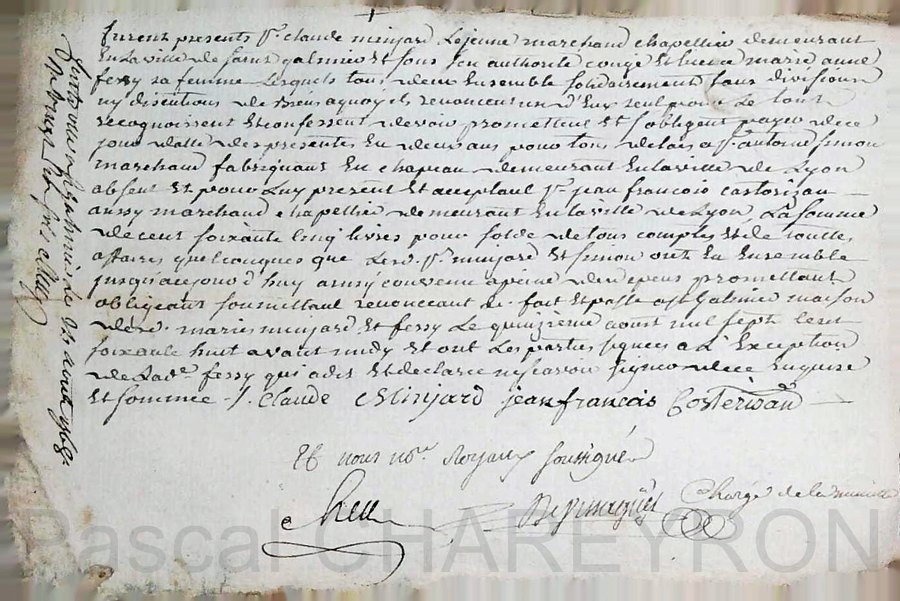 furent presents Sr. claude minjard Lejeune marchand chapellier demeurant
En la ville de saint galmier Et sous son authorité congé Et licence marie anne
fessy sa femme Lesquels tous deux Ensemble solidairement sans division
ny discutions de Biens aquoy ils renoncent un d'Eux seul pour Le tout
recognoissent Et confessent devoir promettent Et s'obligent payer de ce
jour datte des presentes En deux ans pour tous delais a Sr. antoine simon
marchand fabriquant En chapeau demeurant En la ville de Lyon
absent Et pour Luy present Et acceptant Sr. jean francois costerisan
aussy marchand chapellier demeurant En la ville de Lyon La somme
de cent soixante cinq livres pour solde de tous comptes Et de toutte
affaires quelconques que Lesd. Srs. minjard Et simon ont Eu Ensemble
jusqu'acejourd'huy ainsy convenu apeine de depens promettant
obligeant soumettant renonceant &c. fait Et passé a St Galmier maison
desd. mariés minjard Et fessy Le quinzième aoust mil sept cent
soixante huit avant midy Et ont Les parties signées a L'Exception
de Lade. fessy qui a dit Et declaré ne scavoir signer de ce Enquise
Et sommée ·/. Claude Minjard jean francois Costerisan
Et nous nore. Royaux soussignés
Chargé de la minutte
Pascal CHAREYRON